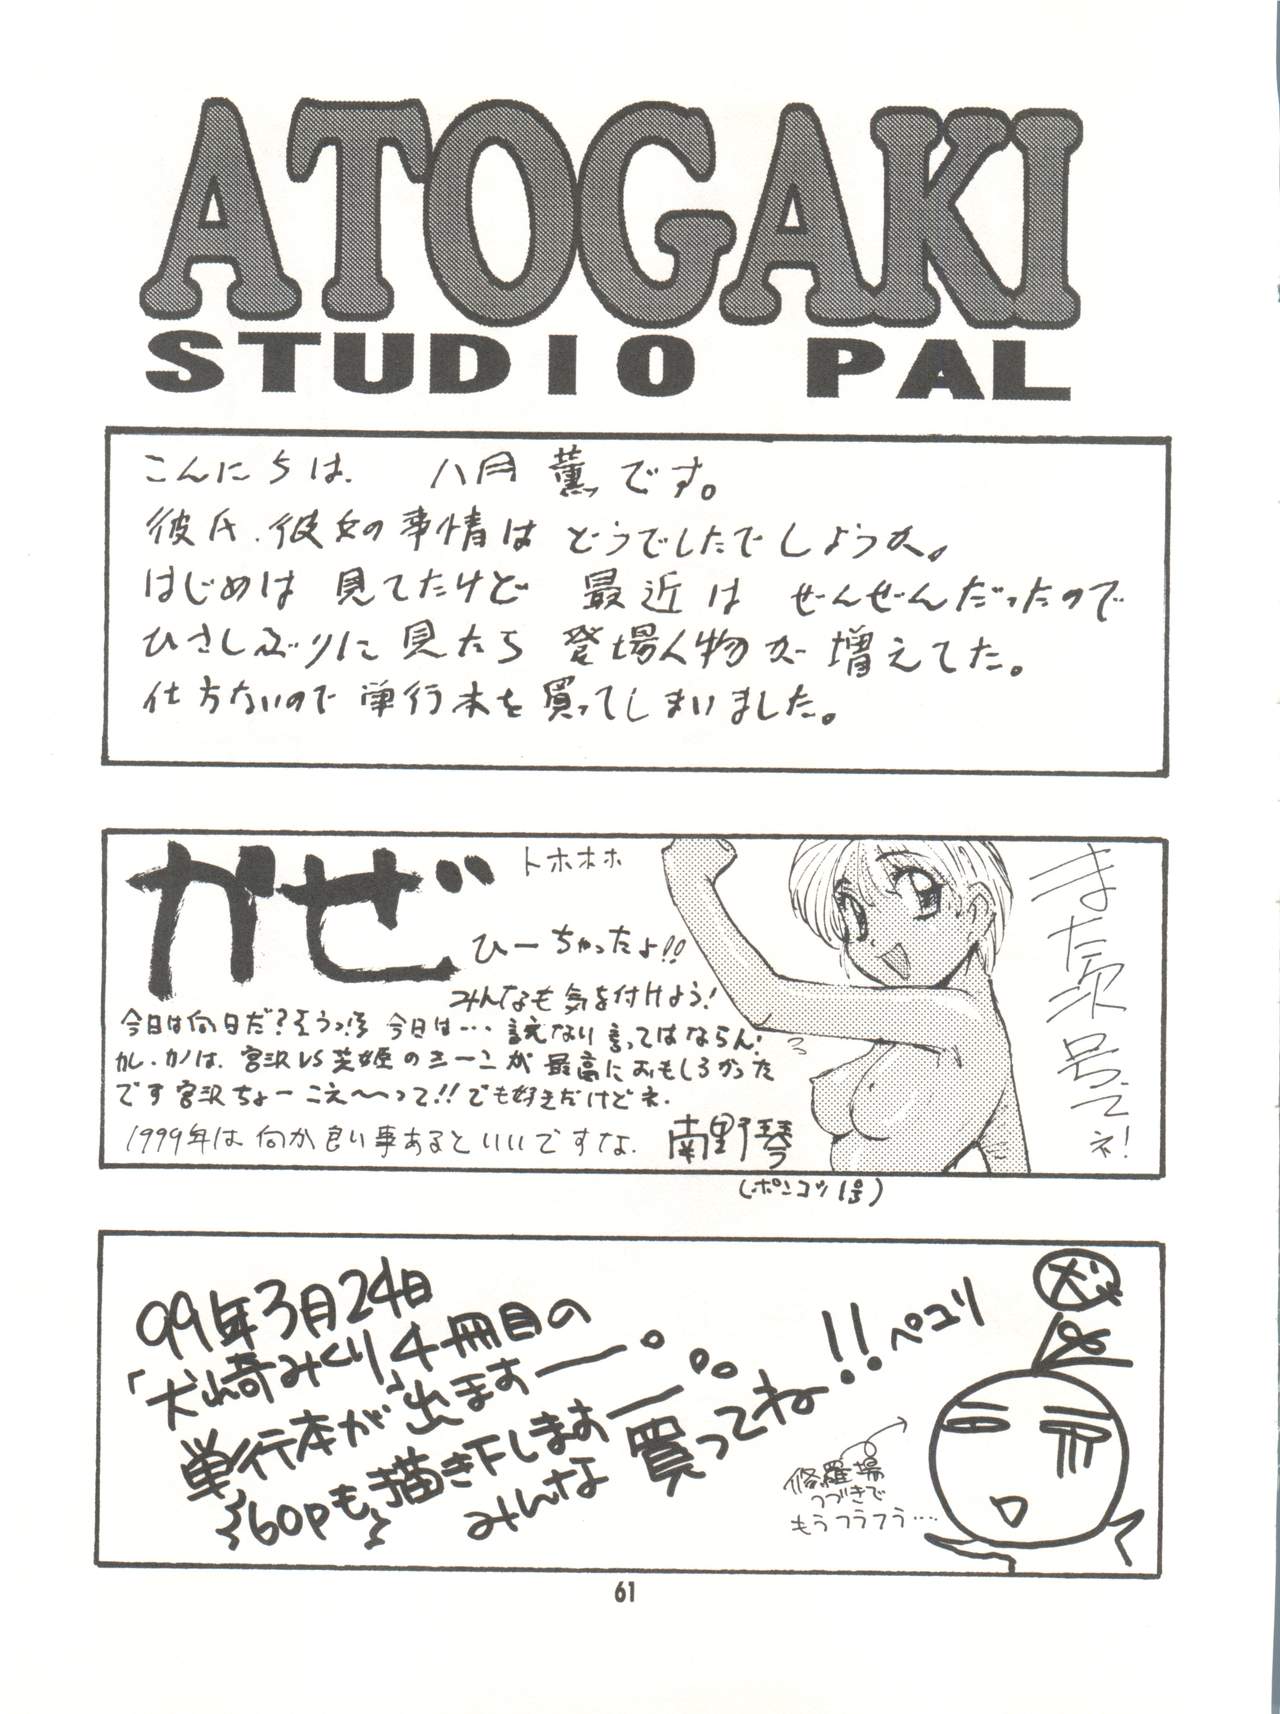 ATOGAKI
STUDIO PAL
こんにちは、八月薫です。
彼氏、彼女の事情はどうでしたでしょうか。
はじめは見てたけど最近はぜんぜんだったので
ひさしぶりに見たら登場人物が増えてた。
仕方ないので単行本を買ってしまいました。
かぜ
トホホホ
ひーちゃったよ!!
みんなも気を付けよう!
今日は何日だ?そうっ!今日は…言えない言ってはならん!
カレ・カノは、宮沢VS芝姫のきーこが最高におもしろかった
です宮沢ちょーこえ〜〜って!!でも好きだけどネ
1999年は何か良い事あるといいですな.
南野琴
(ポンコツ1号)
また次号でネ!
99年3月24日
「犬崎みくり」4冊目の
単行本が出ますー。
60Pも描き下しますー
みんな買ってね!!ペコリ
犬
修羅場
つづきで
もうフラフラ‥‥
61